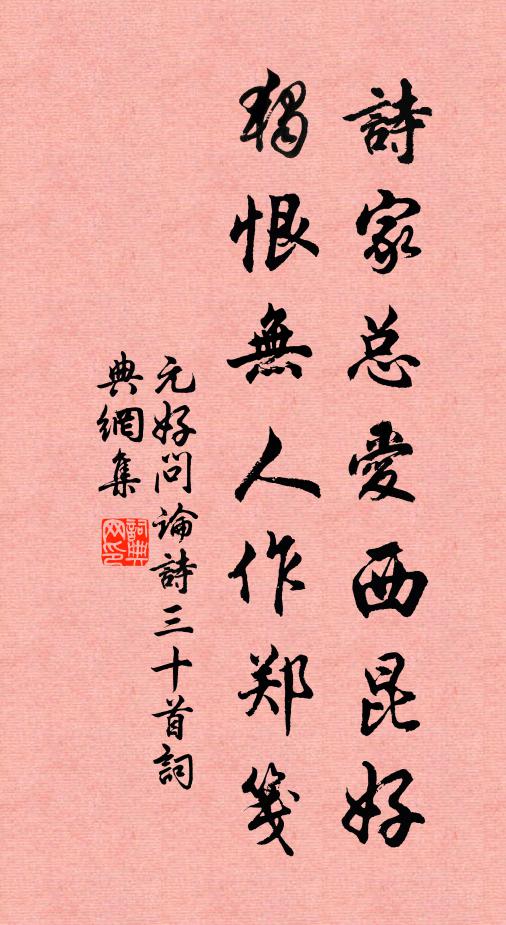 詩家总愛西昆好
獨恨無人作郑箋
元好问論詩三十首詞
典網集
詞典网印